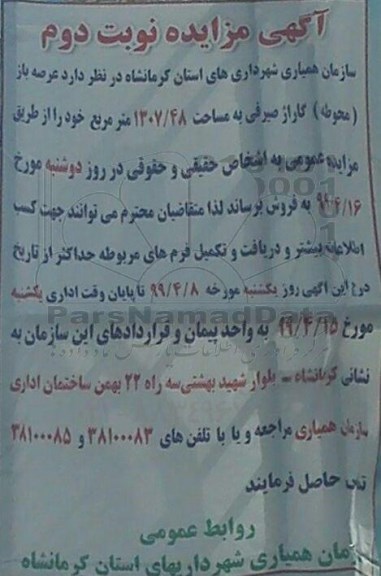 آگهی مزایده نوبت دوم
سازمان همیاری شهرداری های استان کرمانشاه در نظر دارد عرصه باز
(محوطه) گاراژ صیرفی به مساحت ۱۳۰۷/۴۸ متر مربع خود را از طریق
مزایده عمومی به اشخاص حقیقی و حقوقی در روز دوشنبه مورخ
۹۹/۴/۱۶ به فروش برساند لذا متقاضیان محترم می توانند جهت کسب
اطلاعات بیشتر و دریافت و تکمیل فرم های مربوطه حداکثر از تاریخ
درج این آگهی روز یکشنبه مورخه ۹۹/۴/۸ تا پایان وقت اداری یکشنبه
ParsNamadData
مورخ ۹۹/۴/۱۵ به واحد پیمان و قراردادهای این سازمان به
نشانی کرمانشاه - بلوار شهید بهشتی سه راه ۲۲ بهمن ساختمان اداری
سازمان همیاری مراجعه و یا با تلفن های ۳۸۱۰۰۰۸۳ و ۳۸۱۰۰۰۸۵
حاصل فرمایند
روابط عمومی
همیاری شهرداریهای استان کرمانشاه